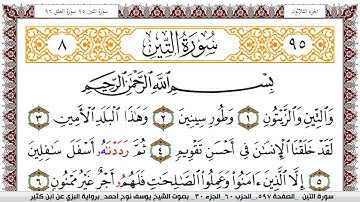 الجزء الثلاثون سورة التين ٩٥ سورة العلق ٩٦
٩٥ سُورَةُ التِّينِ ٨
بِسْمِ اللَّهِ الرَّحْمَٰنِ الرَّحِيمِ
وَٱلتِّينِ وَٱلزَّيْتُونِ ١ وَطُورِ سِينِينَ ٢ وَهَٰذَا ٱلْبَلَدِ ٱلْأَمِينِ ٣
لَقَدْ خَلَقْنَا ٱلْإِنسَٰنَ فِى أَحْسَنِ تَقْوِيمٍ ٤ ثُمَّ رَدَدْنَٰهُۥ أَسْفَلَ سَٰفِلِينَ
٥ إِلَّا ٱلَّذِينَ ءَامَنُوا۟ وَعَمِلُوا۟ ٱلصَّٰلِحَٰتِ فَلَهُمُۥ أَجْرٌ غَيْرُ مَمْنُونٍ ٦
سورة التين _ الصفحة ٥٩٧_ الحزب ٦٠_ الجزء ٣٠_ بصوت الشيخ يوسف نوح احمد برواية البزي عن ابن كثير